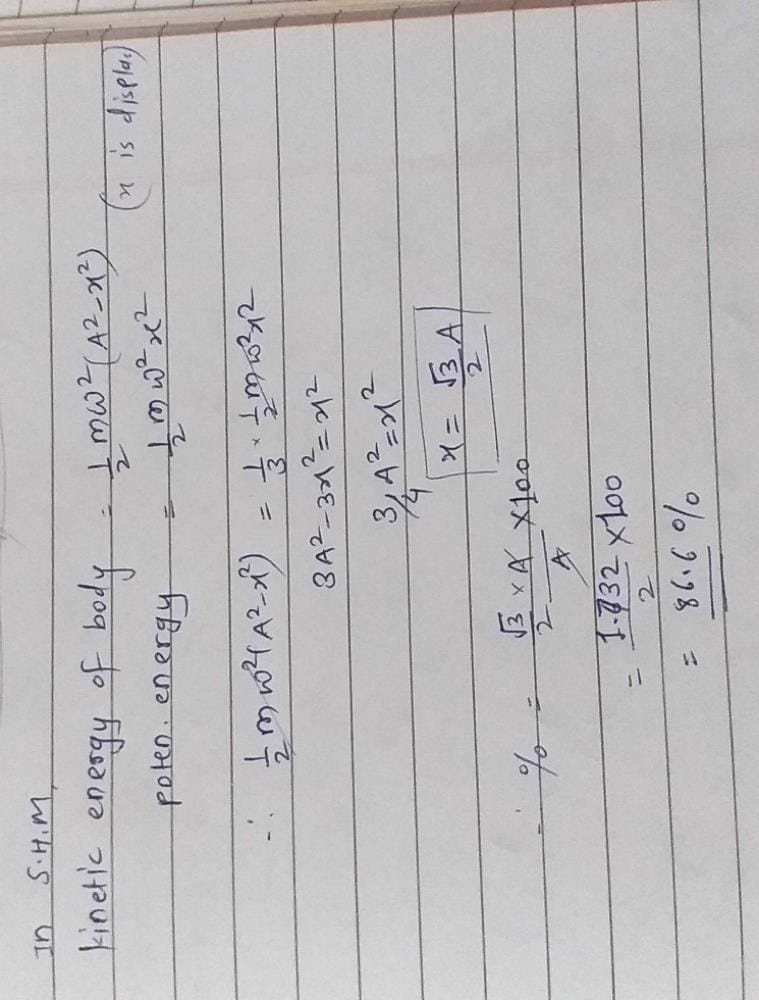 In S.H.M,
kinetic energy of body = 1/2 mω²(A²-x²)
poten. energy = 1/2 mω²x² (x is displa.)
∴ 1/2 mω²(A²-x²) = 1/3 × 1/2 mω²x²
3A²-3x²=x²
3/4 A²=x²
x = √3/2 A
∴ % = √3/2 × A/A ×100
= 1.732/2 ×100
= 86.6%